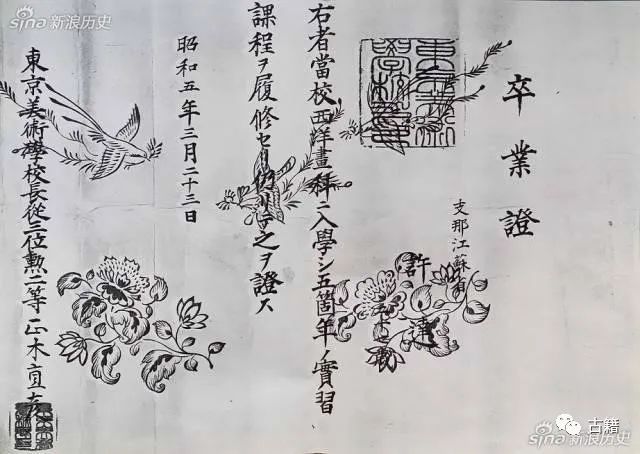 sina 新浪历史
卒業證
支那江蘇省
許
右者當校西洋畫科ニ入學シ五箇年ノ實習
課程ヲ履修セリ仍リテ之ヲ證ス
昭和五年三月二十三日
東京美術學校長從三位勲二等正木直彦
古籍
sina 新浪历史